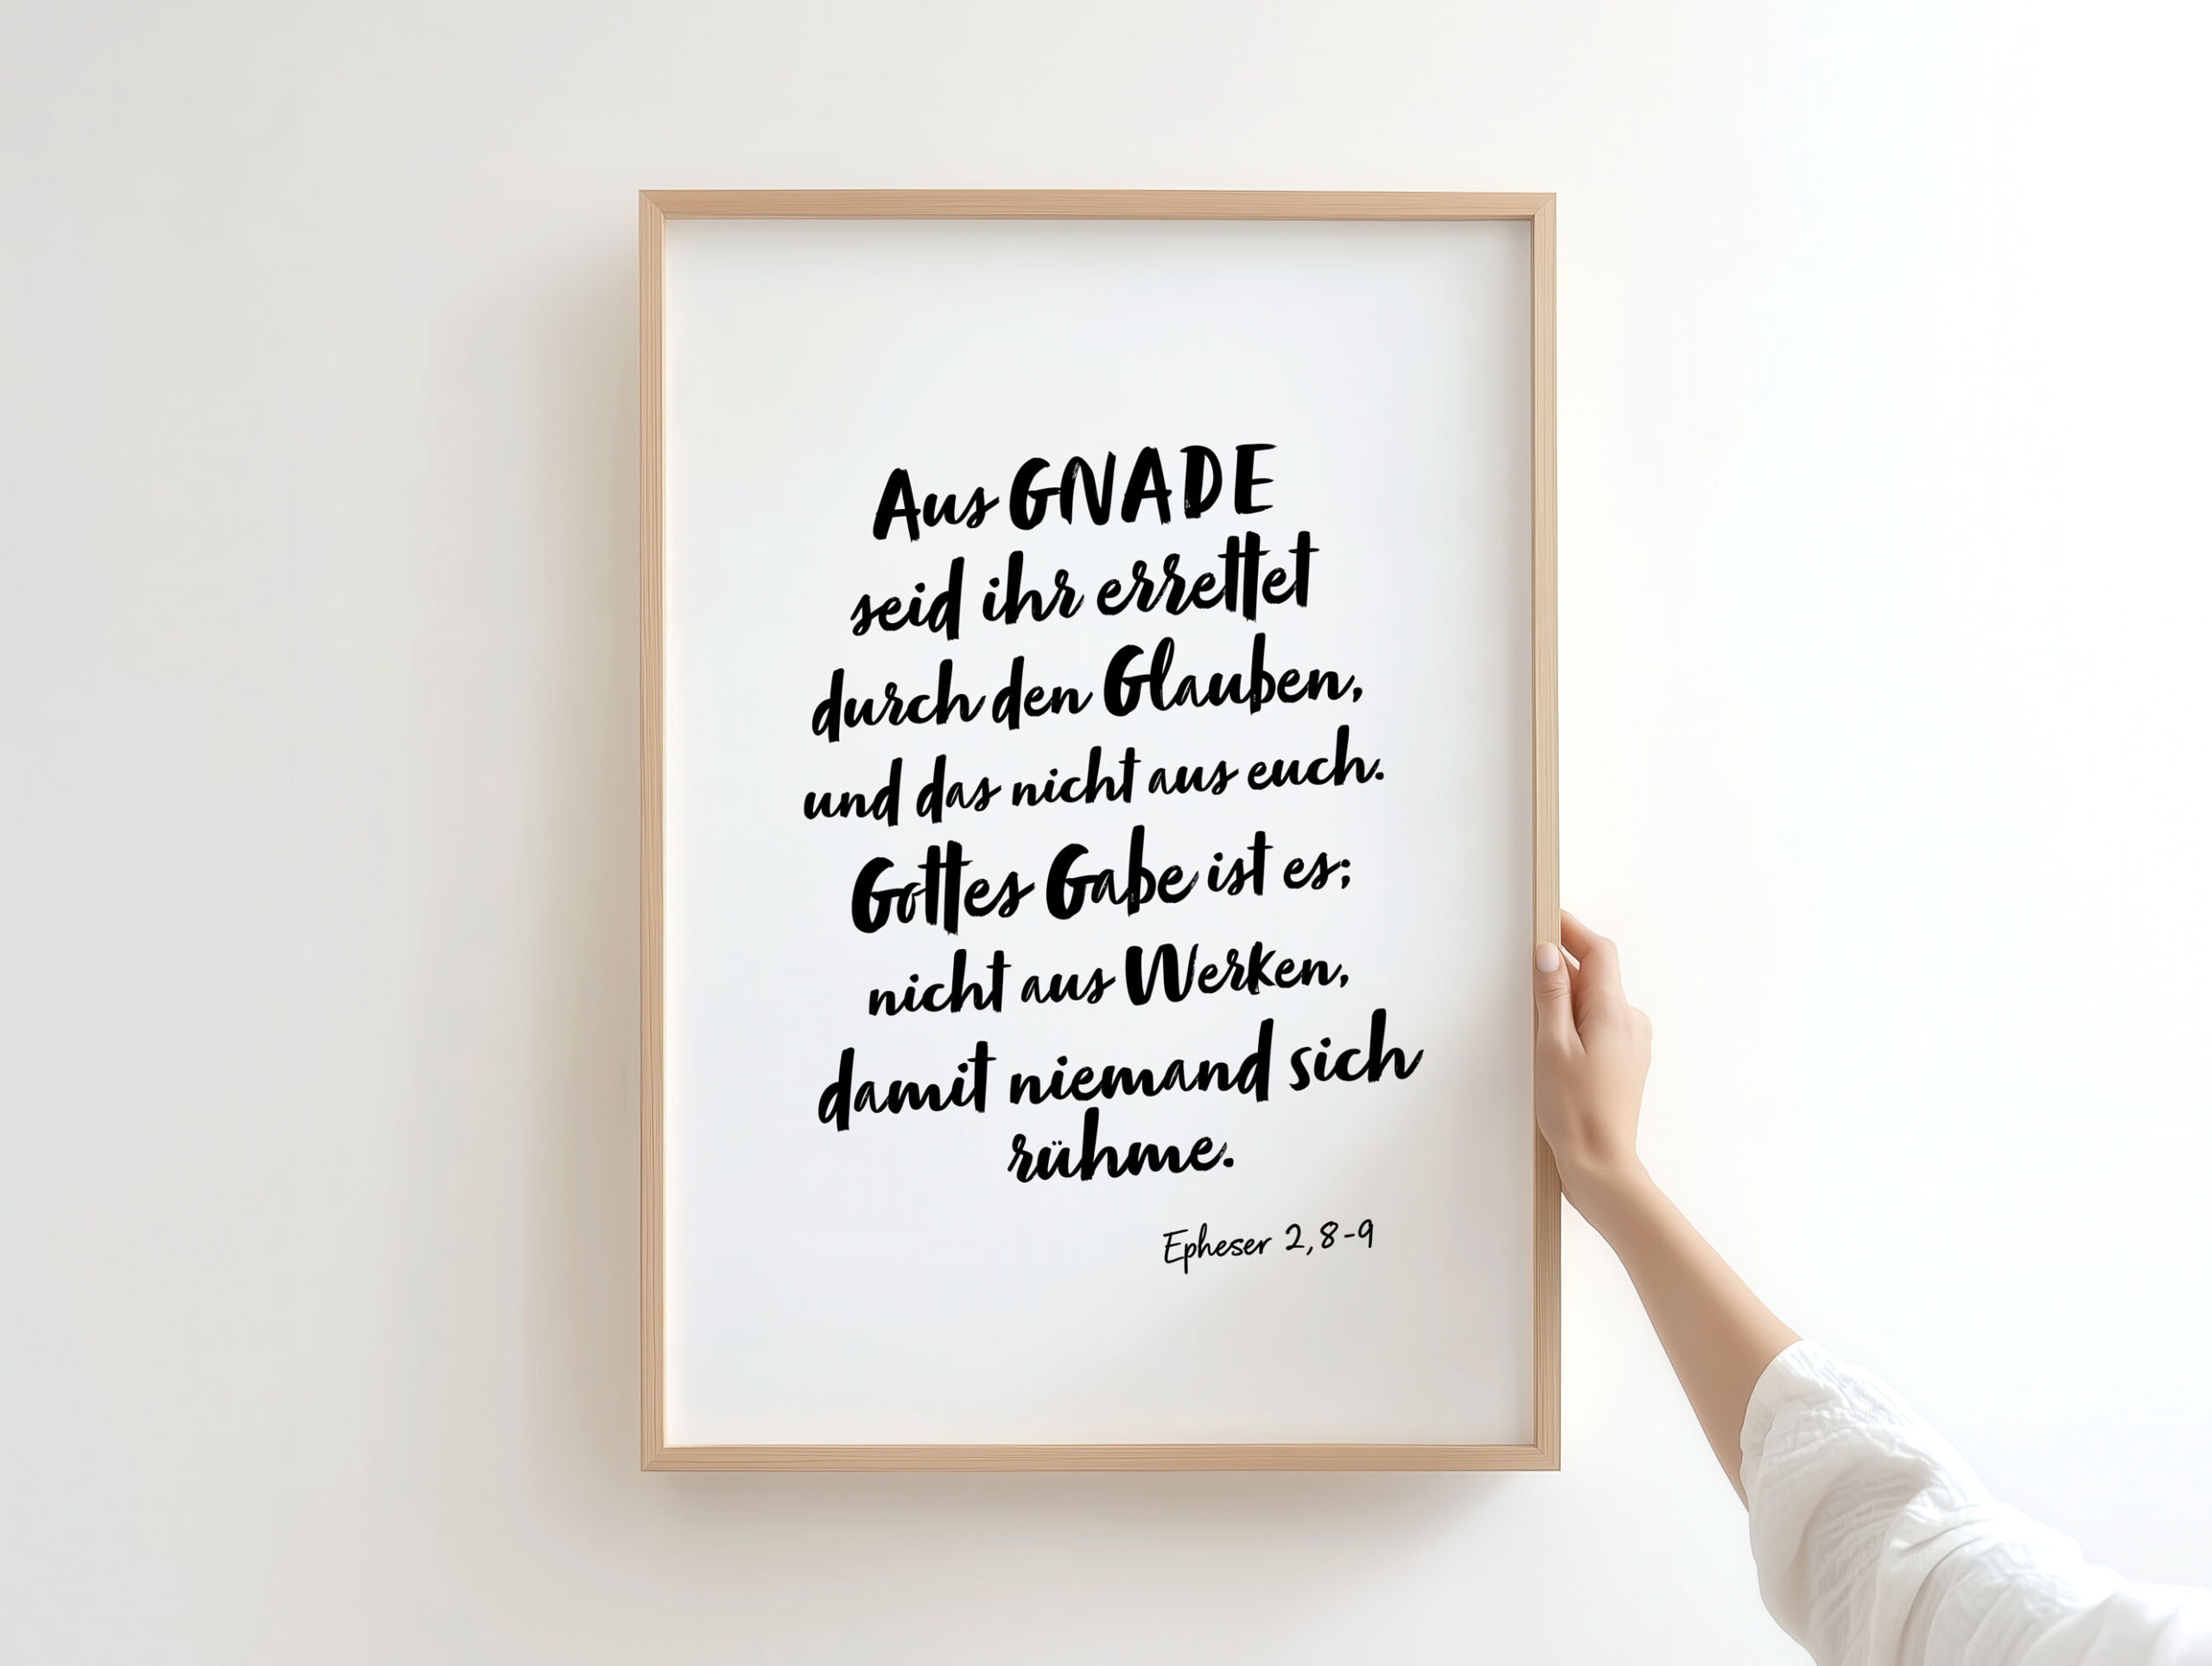 Aus GNADE
seid ihr errettet
durch den Glauben,
und das nicht aus euch.
Gottes Gabe ist es;
nicht aus Werken,
damit niemand sich
rühme.
Epheser 2,8-9